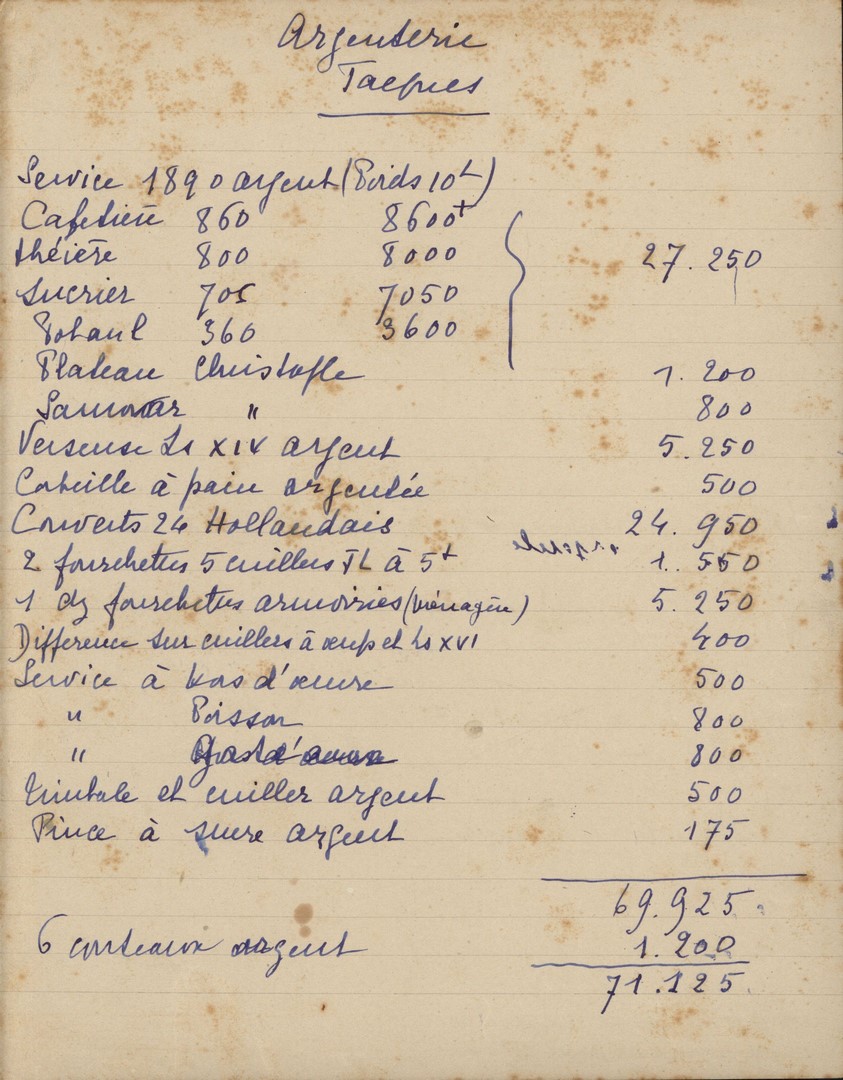 Argenterie
Jacques
Service 1890 argent (Poids 10L)
Cafetière 860 8600+
théière 800 8000 27.250
Sucrier 705 7050
Potaul 360 3600
Plateau Christofle 1.200
Samovar " 800
Verseuse Ls XIV argent 5.250
Corbeille à pain argentée 500
Couverts 24 Hollandais 24.950
2 fourchettes 5 cuillers à 5+ 1.550
1 dz fourchettes armoiries (ménagère) 5.250
Différence sur cuillers à œufs et Ls XVI 400
Service à hors d'œuvre 500
" Poisson 800
" 800
timbale et cuiller argent 500
Pince à sucre argent 175
69.925
6 couteaux argent 1.200
71.125